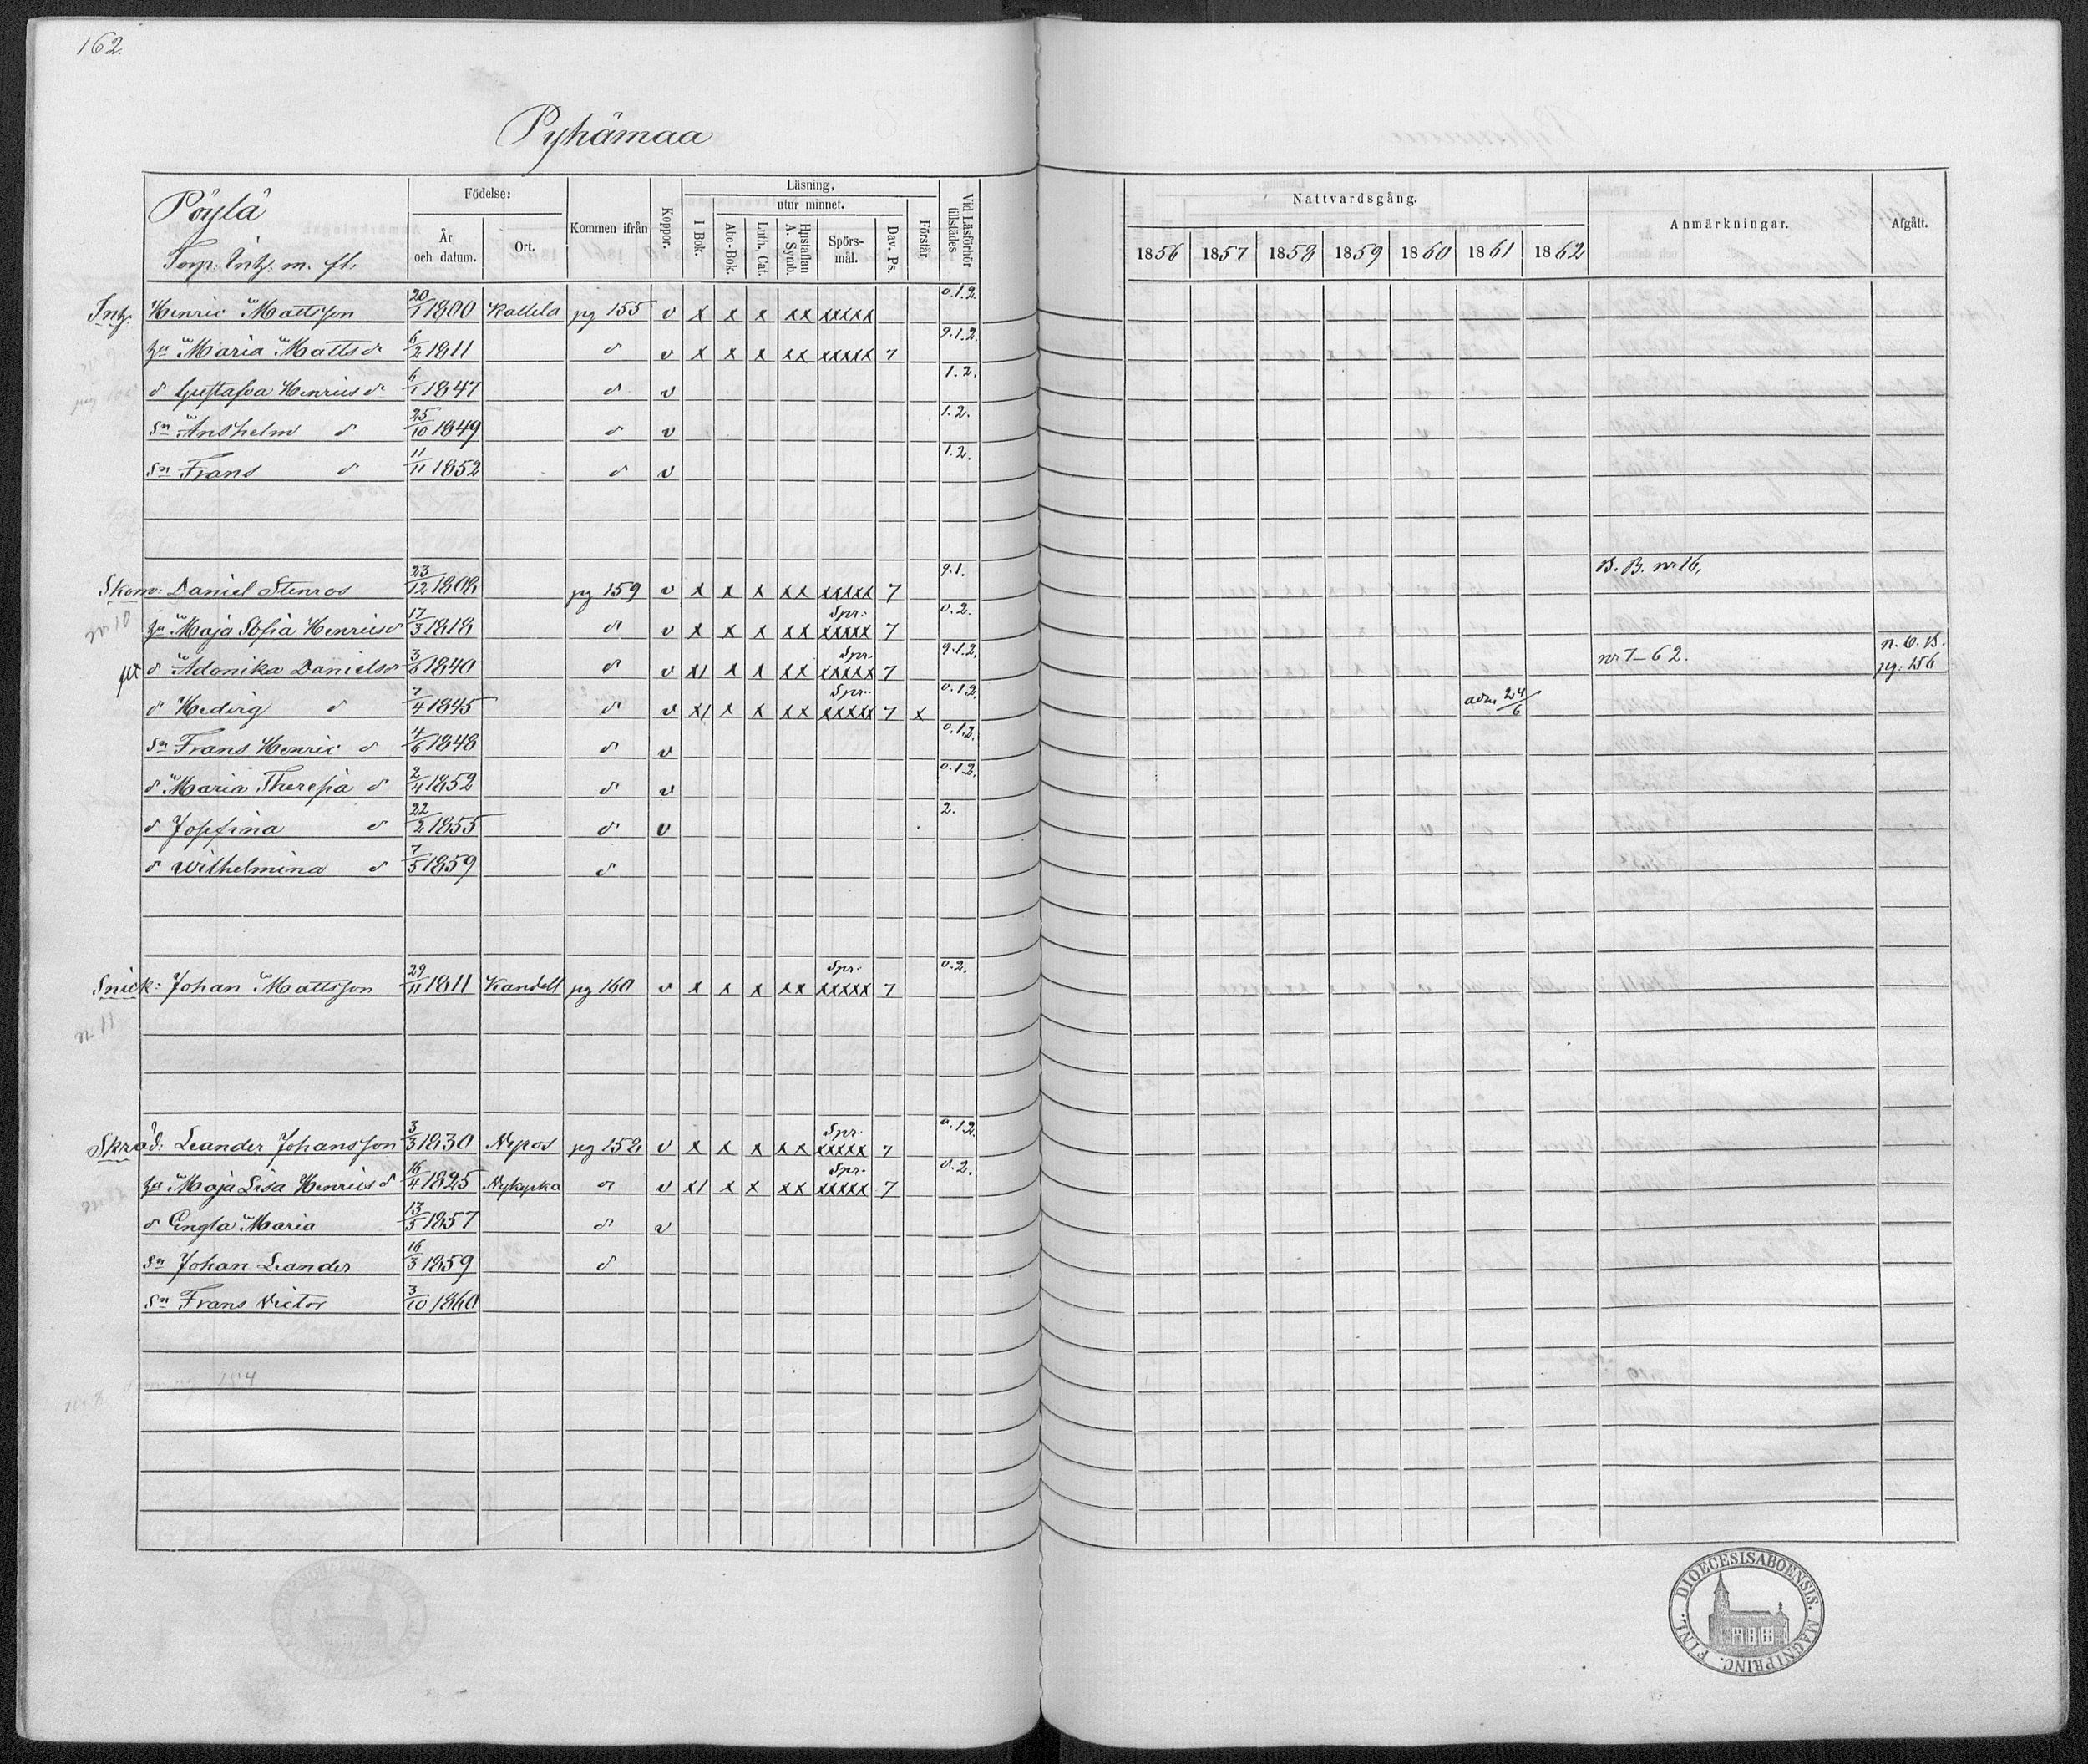 162.
Pyhämaa
Pöylä
Torp: Inh: m. fl.
Födelse:
År och datum.
Ort.
Kommen ifrån
Koppor.
Läsning,
utur minnet.
I Bok.
Abc-Bok.
Luth. Cat.
Hustaflan A. Symb.
Spörs-mål.
Dav. Ps.
Förstår.
Vid Läsförhör tillstädes
Nattvardsgång.
1856 1857 1858 1859 1860 1861 1862
Anmärkningar.
Afgått.
Inh: Henric Mattsson 20/1 1800 Kallila pg 155 v x x x xx xxxxx 0.1.2.
hu Maria Mattsdr 6/2 1811 d v x x x xx xxxxx 7 9.1.2.
d Gustafva Henricsdr 6/1 1847 d v 1.2.
sn Anshelm d 25/10 1849 d v 1.2.
sn Frans d 11/11 1852 d v 1.2.
Skom: Daniel Stenros 23/12 1808 pg 159 v x x x xx xxxxx 7 9.1. B. B. nr 16,
nr 10
hu Maja Sofia Henricsd 17/3 1818 d v x x x xx Spr: xxxxx 7 0.2.
d Adonika Danielsdr 3/6 1840 d v x/ x x xx Spr. xxxxx 7 9.1.2. nr 7-62. n. C. B. pg: 156
d Hedvig d 7/4 1845 d v x/ x x xx Spr. xxxxx 7 x 0.1.2. adm 24/6
sn Frans Henric d 4/6 1848 d v 0.1.2.
d Maria Theresia d 2/4 1852 d v 0.1.2.
d Josefina d 22/2 1855 d v 2.
d Wilhelmina d 7/5 1859 d
Snick: Johan Mattsson 29/11 1811 Kandelt pg 160 v x x x xx Spr. xxxxx 7 0.2.
nr 11
Skräd: Leander Johansson 3/3 1830 Nypos pg 152 v x x x xx Spr. xxxxx 7 0.1.2.
hu Maja Lisa Henricsd 16/4 1825 Nykyrka d v x/ x x xx Spr. xxxxx 7 0.2.
d Engla Maria 13/5 1857 d v
sn Johan Leander 16/3 1859 d
sn Frans Victor 3/10 1860
DIOECESIS ABOENSIS. MAGNI PRINC. FINL.